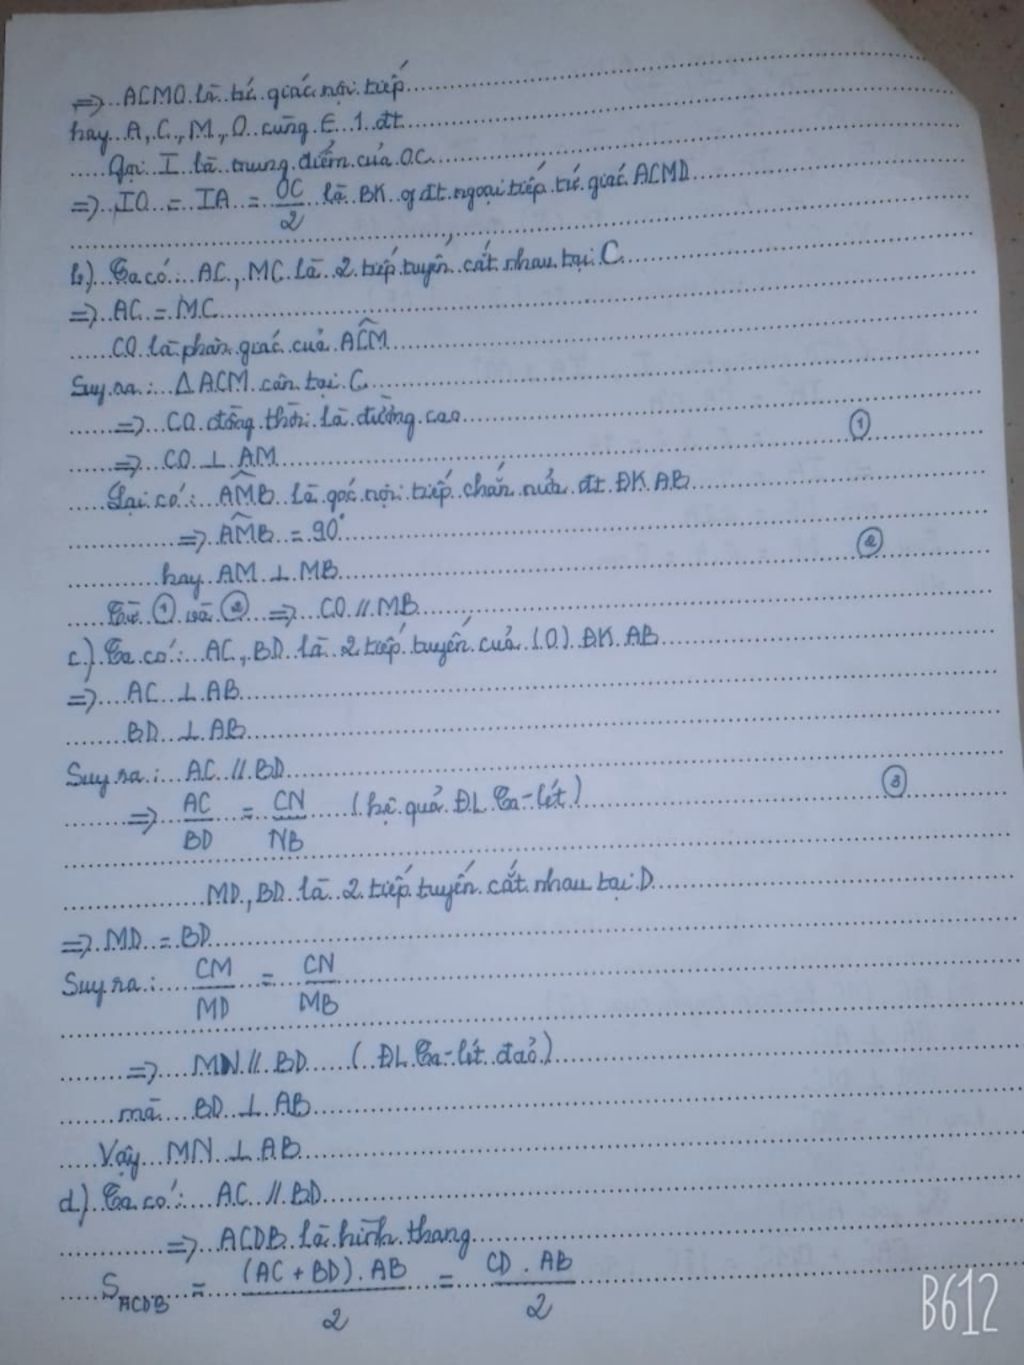 => ACMO là tứ giác nội tiếp
hay A, C, M, O cùng ∈ 1 đt
Gọi I là trung điểm của OC
=> IO = IA = OC/2 là BK đt ngoại tiếp tứ giác ACMD
b) Ta có: AC, MC là 2 tiếp tuyến cắt nhau tại C
=> AC = MC
CO là phân giác của ACM̂
Suy ra: Δ ACM cân tại C
=> CO đồng thời là đường cao
=> CO ⊥ AM ①
Lại có: AMB̂ là góc nội tiếp chắn nửa đt ĐK AB
=> AMB̂ = 90°
hay AM ⊥ MB ②
Từ ① và ② => CO // MB
c) Ta có: AC, BD là 2 tiếp tuyến của (O) ĐK AB
=> AC ⊥ AB
BD ⊥ AB
Suy ra: AC // BD
=> AC/BD = CN/NB (hệ quả ĐL Ta-lét) ③
MD, BD là 2 tiếp tuyến cắt nhau tại D
=> MD = BD
Suy ra: CM/MD = CN/MB
=> MN // BD (ĐL Ta-lét đảo)
mà BD ⊥ AB
Vậy MN ⊥ AB
d) Ta có: AC // BD
=> ACDB là hình thang
S_ACDB = (AC + BD) . AB / 2 = CD . AB / 2
B612